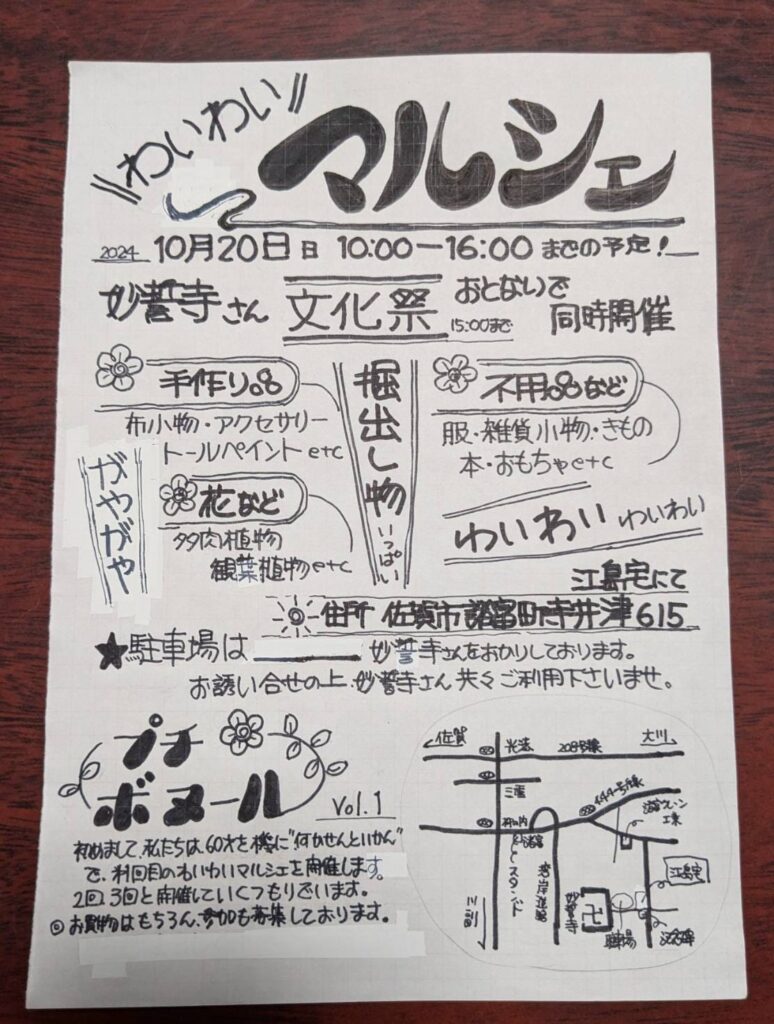 わいわい
マルシェ
2024 10月20日 日 10:00ー16:00 までの予定!
妙誓寺さん 文化祭 15:00まで おとないで 同時開催
手作り品
布小物・アクセサリー
トールペイント etc
掘出し物 いっぱい
不用品など
服・雑貨小物・きもの
本・おもちゃ etc
がやがや
花など
多肉植物
観葉植物 etc
わいわい わいわい
江島宅にて
住所 佐賀市諸富町寺井津615
★駐車場は 妙誓寺さんをおかりしております。
お誘い合せの上、妙誓寺さん共々ご利用下さいませ。
プチ
ボヌール
Vol.1
初めまして、私たちは、60才を機に"何かせんといかん"
で、1回目のわいわいマルシェを開催します。
2回、3回と開催していくつもりでいます。
◎お買物はもちろん、参加も募集しております。
佐賀
光法
208号線
大川
三重
444号線
江島宅
妙誓寺
卍
駐車場